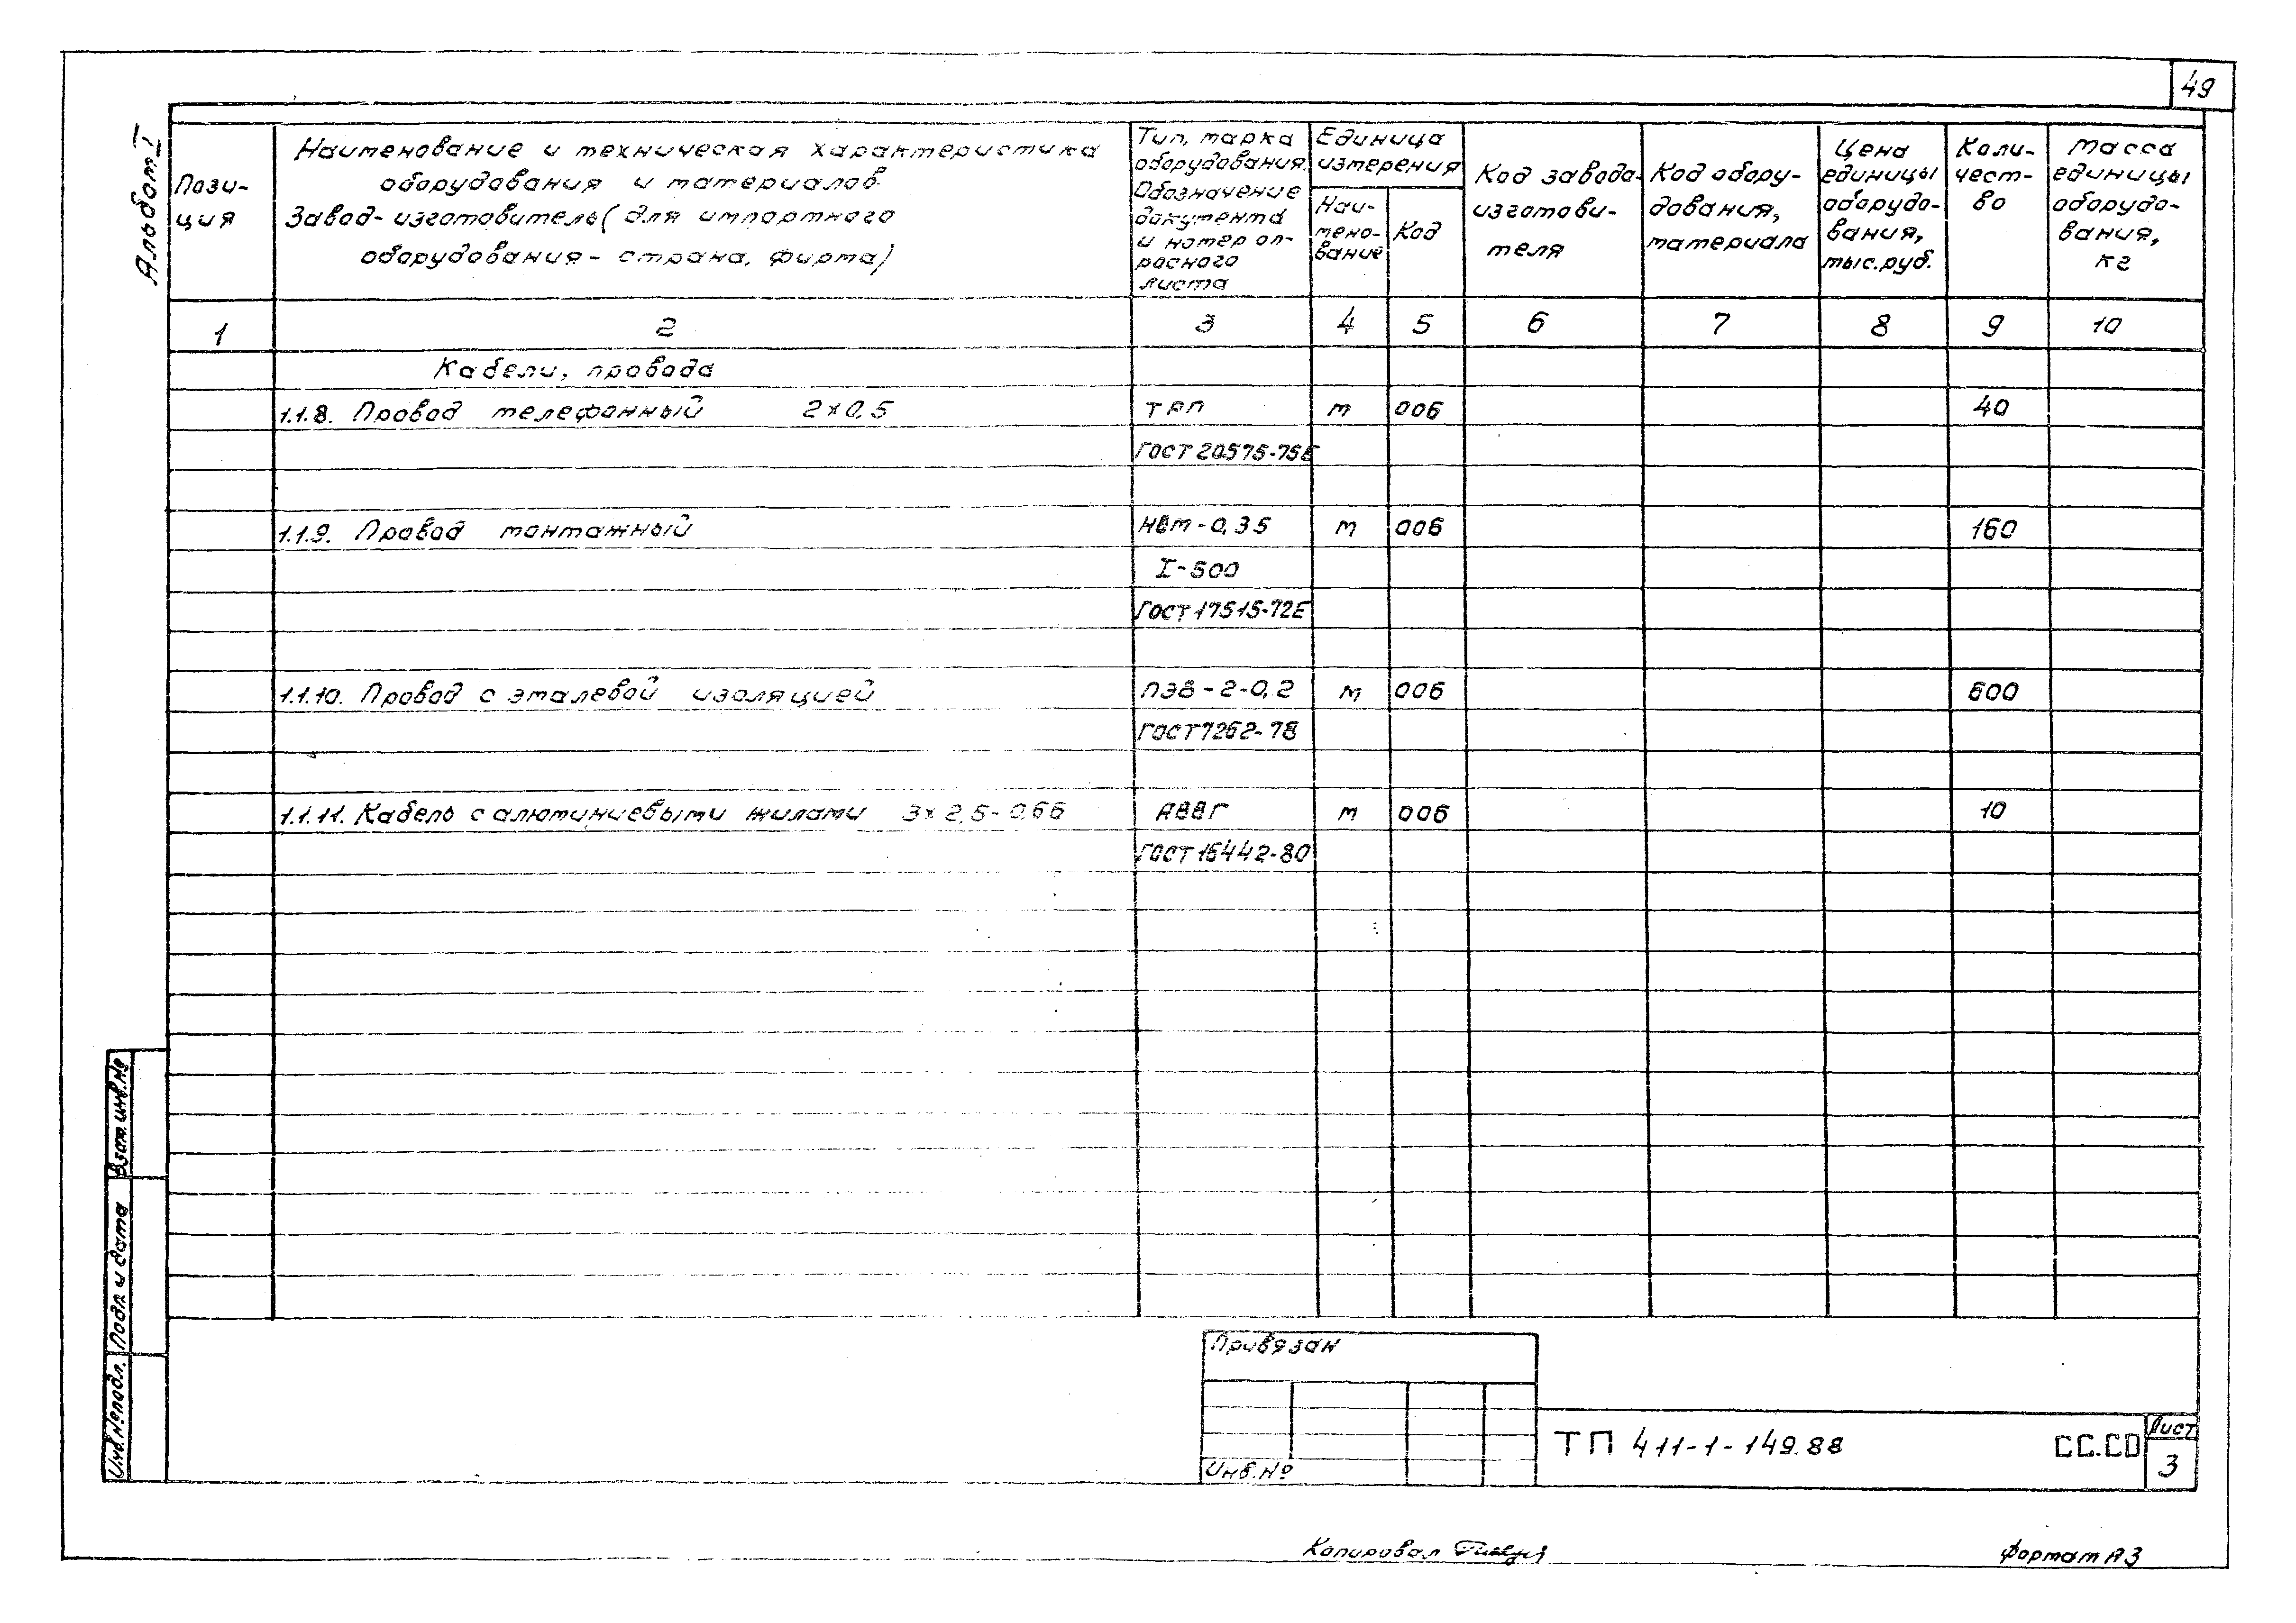 49
Альбом I
Пози-
ция
Наименование и техническая характеристика
оборудования и материалов.
Завод-изготовитель (для импортного
оборудования - страна, фирма)
Тип, марка
оборудования.
Обозначение
документа
и номер оп-
росного
листа
Единица
измерения
Наи-
мено-
вание
Код
Код завода-
изготови-
теля
Код обору-
дования,
материала
Цена
единицы
оборудо-
вания,
тыс.руб.
Коли-
чест-
во
Масса
единицы
оборудо-
вания,
кг
1 2 3 4 5 6 7 8 9 10
Кабели, провода
1.1.8. Провод телефонный 2×0,5 ТРП м 006 40
ГОСТ 20575-75Е
1.1.9. Провод монтажный НВМ-0,35 м 006 160
I-500
ГОСТ 17515-72Е
1.1.10. Провод с эмалевой изоляцией ПЭВ-2-0,2 м 006 600
ГОСТ 7262-78
1.1.11. Кабель с алюминиевыми жилами 3×2,5-0,66 АВВГ м 006 10
ГОСТ 16442-80
Взам. инв. №
Подп. и дата
Инв. № подл.
Привязан
Инв. №
ТП 411-1-149.88 СС.СО
Лист
3
Копировал
Формат А3